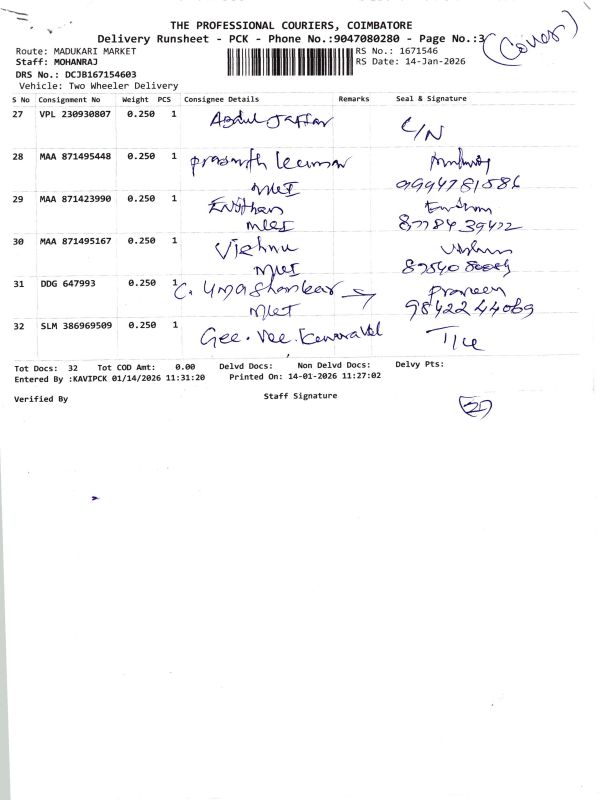 (Cover)
THE PROFESSIONAL COURIERS, COIMBATORE
Delivery Runsheet - PCK - Phone No.:9047080280 - Page No.:3
Route: MADUKARI MARKET RS No.: 1671546
Staff: MOHANRAJ RS Date: 14-Jan-2026
DRS No.: DCJB167154603
Vehicle: Two Wheeler Delivery
S No Consignment No Weight PCS Consignee Details Remarks Seal & Signature
27 VPL 230930807 0.250 1 Abdul Jaffar C/N
28 MAA 871495448 0.250 1 prasanth
9994781586
29 MAA 871423990 0.250 1
8778439422
30 MAA 871495167 0.250 1 Vishnu
31 DDG 647993 0.250 1 C. Umashankar Praveen
9842244069
32 SLM 386969509 0.250 1 Gee. Vee.
Tot Docs: 32 Tot COD Amt: 0.00 Delvd Docs: Non Delvd Docs: Delvy Pts:
Entered By :KAVIPCK 01/14/2026 11:31:20 Printed On: 14-01-2026 11:27:02
Verified By Staff Signature